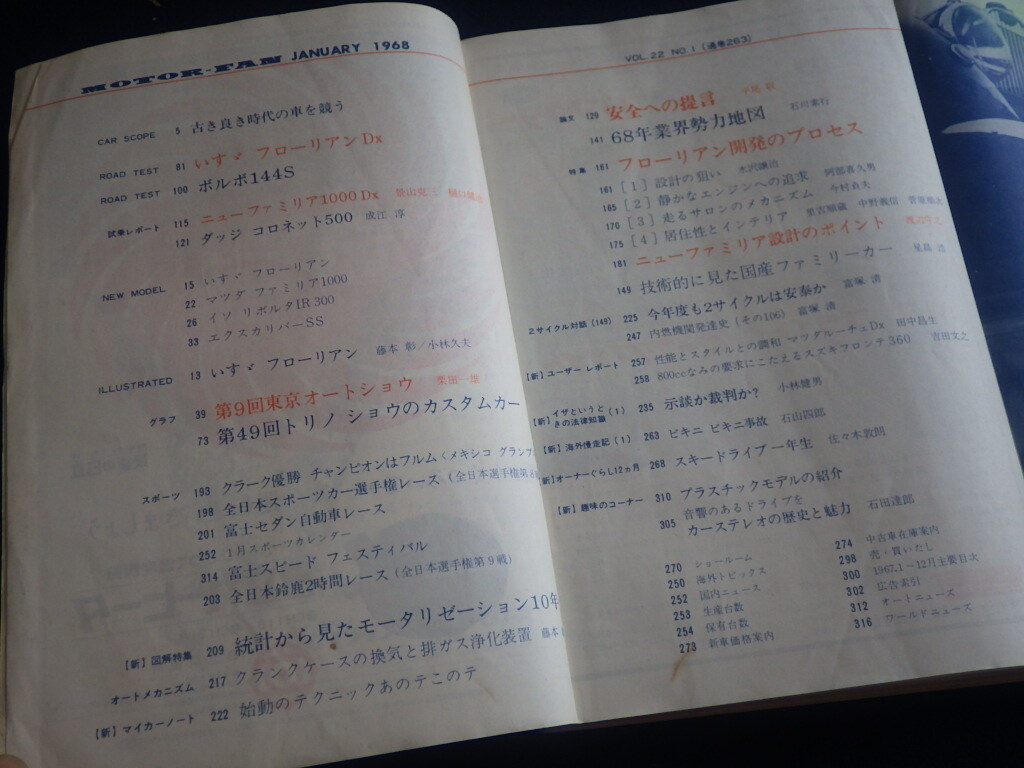 MOTOR-FAN JANUARY 1968
CAR SCOPE 5 古き良き時代の車を競う
ROAD TEST 81 いすゞ フローリアンDx
ROAD TEST 100 ボルボ144S
試乗レポート 115 ニューファミリア1000Dx
121 ダッジ コロネット500
NEW MODEL 15 いすゞ フローリアン
22 マツダ ファミリア1000
26 イソ リボルタIR300
33 エクスカリバーSS
ILLUSTRATED 13 いすゞ フローリアン 藤本 彰/小林久夫
グラフ 39 第9回東京オートショウ
73 第49回トリノ ショウのカスタムカー
スポーツ 193 クラーク優勝 チャンピオンはフルム〈メキシコ グランプ
198 全日本スポーツカー選手権レース(全日本選手権第
201 富士セダン自動車レース
252 1月スポーツカレンダー
314 富士スピード フェスティバル
203 全日本鈴鹿2時間レース(全日本選手権第9戦)
【新】図解特集 209 統計から見たモータリゼーション10年
オートメカニズム 217 クランクケースの換気と排ガス浄化装置 藤本
【新】マイカーノート 222 始動のテクニックあのテこのテ
VOL. 22 NO. 1 (通巻263)
論文 129 安全への提言
141 68年業界勢力地図
特集 161 フローリアン開発のプロセス
161 [1] 設計の狙い
165 [2] 静かなエンジンへの追求 阿部喜久男
170 [3] 走るサロンのメカニズム 今村貞夫
175 [4] 居住性とインテリア
181 ニューファミリア設計のポイント
149 技術的に見た国産ファミリーカー
2サイクル対話(149) 225 今年度も2サイクルは安泰か 富塚 清
247 内燃機関発達史(その106) 富塚 清
【新】ユーザー レポート 257 性能とスタイルとの調和 マツダルーチェDx 田中昌生
258 800ccなみの要求にこたえるスズキフロンテ360
【新】イザというときの法律知識(1) 235 示談か裁判か? 小林健男
【新】海外漫走記(1) 263 ビキニ ビキニ事故 石山四郎
【新】オーナーぐらし12ヵ月 268 スキードライブ一年生 佐々木敦朗
【新】趣味のコーナー 310 プラスチックモデルの紹介
305 音響のあるドライブを
カーステレオの歴史と魅力 石田達郎
270 ショールーム
250 海外トピックス
252 国内ニュース
253 生産台数
254 保有台数
273 新車価格案内
274 中古車在庫案内
298 売・買いたし
300 1967.1―12月主要日次
302 広告索引
312 オートニューズ
316 ワールドニューズ